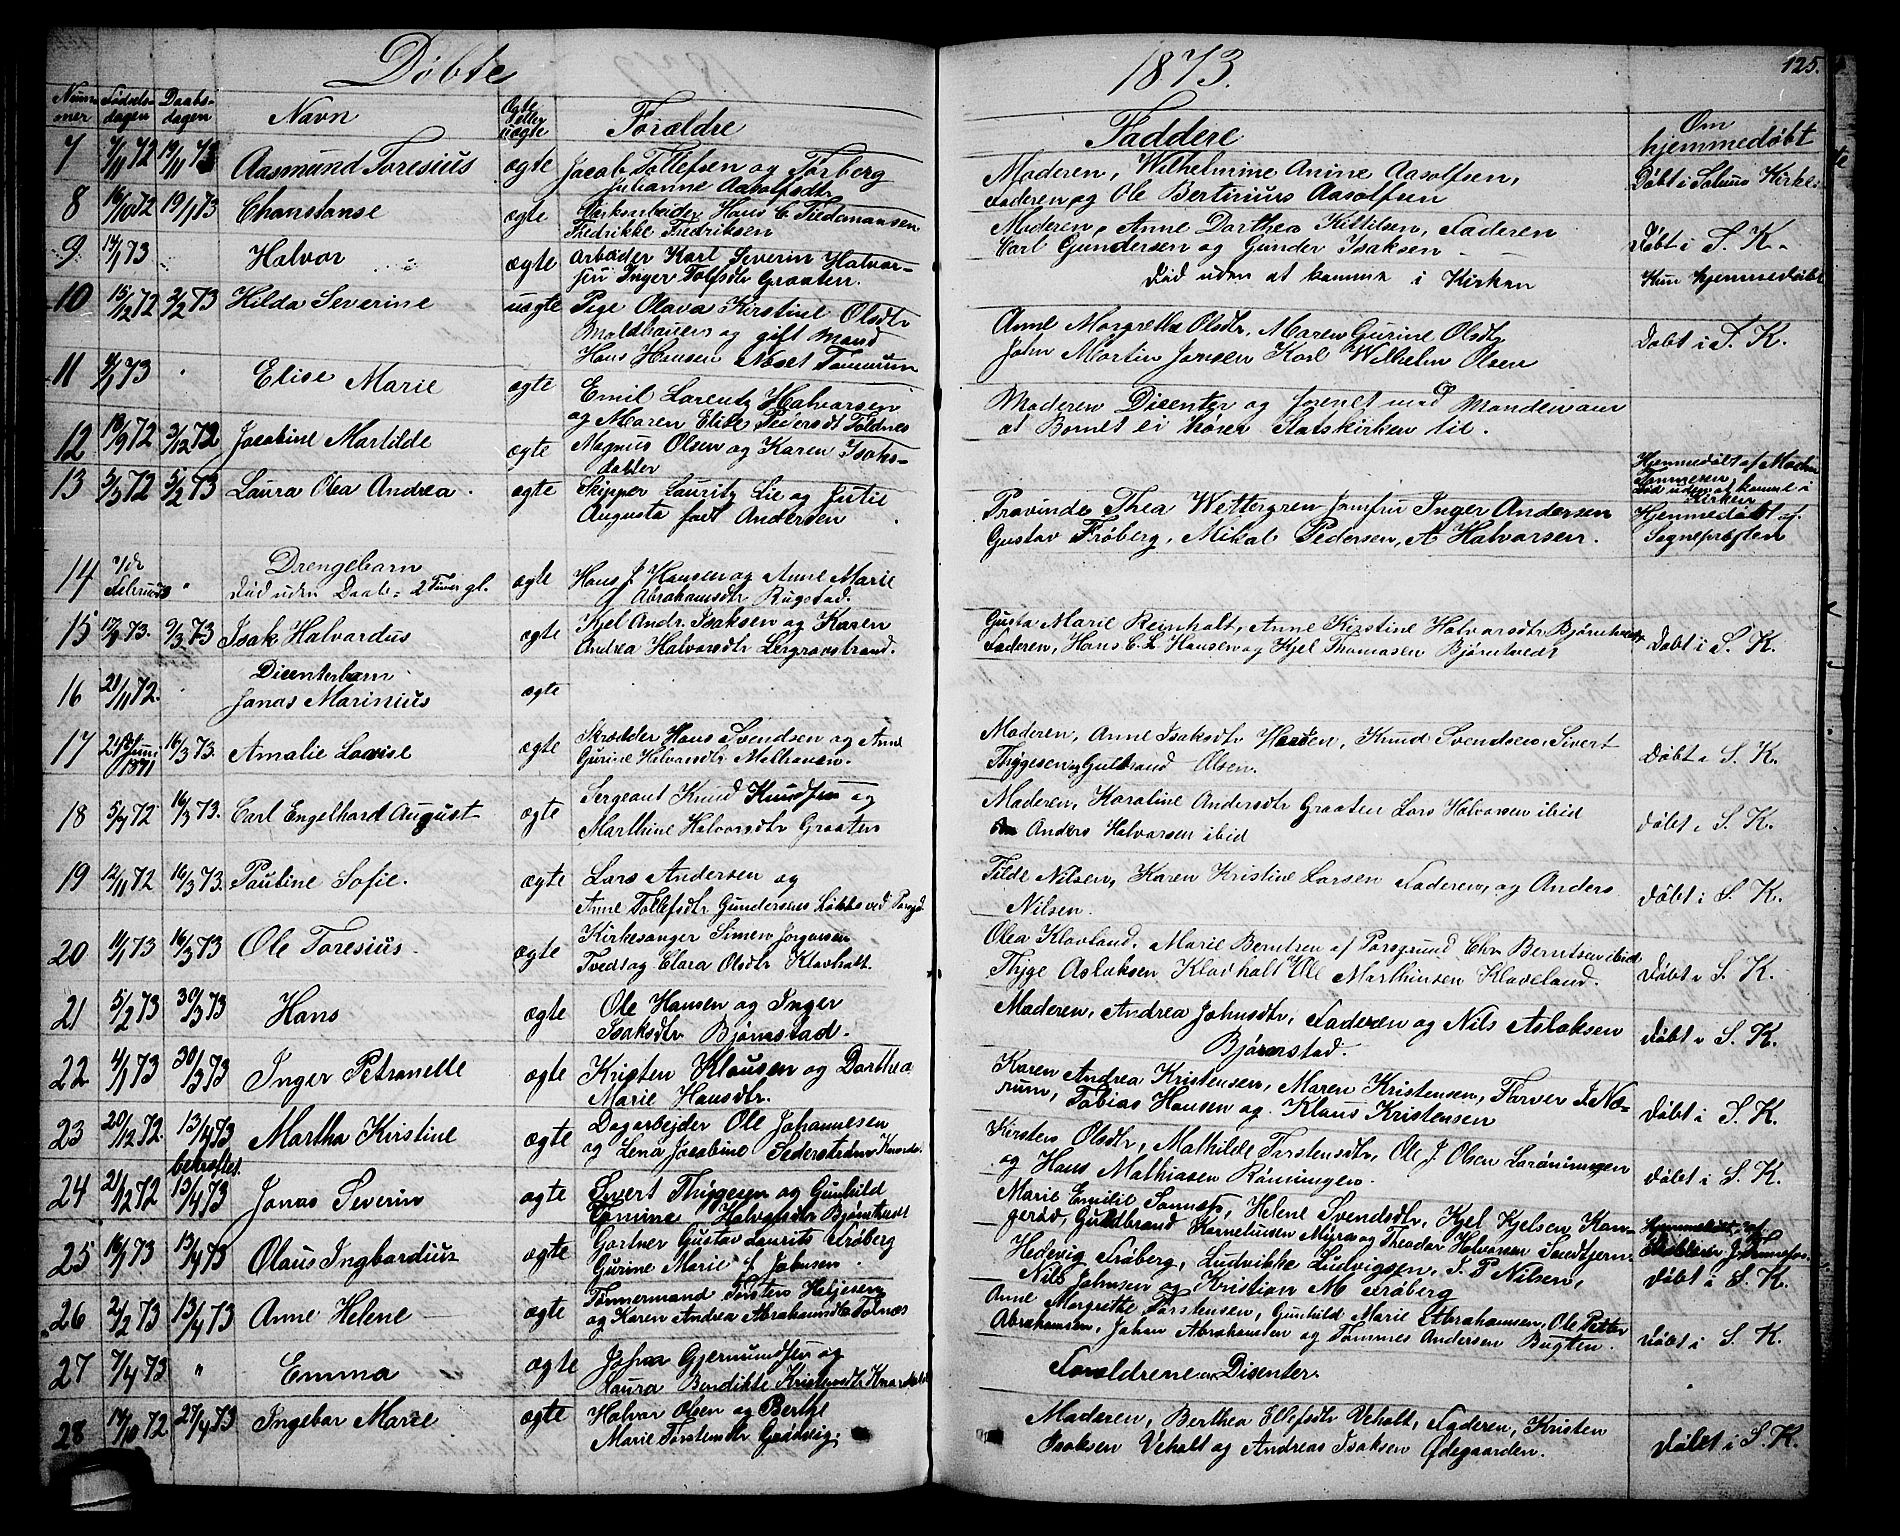 Døbte
1873.
125.
Num-
mer
Fødsels-
dagen
Daabs-
dagen
Navn
Ægte
eller
uægte
Forældre
Faddere
Om
hjemmedøbt
7 7/11 72 Aasmund Toresius ægte Jacob Tollefsen og Torborg
Julianne Aasolfsdtr
Moderen, Wilhelmine Anine Aasolfsen,
Faderen og Ole Bertinius Aasolfsen
Døbt i Solums Kirke
8 16/10 72 19/1 73 Chanstanse ægte Værksarbeider Hans C. Tidemansen
Fredrikke Fredriksen
Moderen, Anne Darthea Kittilsen, Faderen
Carl Gundersen og Gunder Isaksen
Døbt i S. K.
9 14/1 73 Halvor ægte Arbeider Karl Severin Halvor-
sen Inger Tolfsdtr Graaten.
Død uden at komme i Kirken
Kun hjemmedøbt
10 15/12 72 2/2 73 Hilda Severine uægte Pige Olava Kirstine Olsdtr
Moldhauen og gift Mand
Hans Hansen Næset
Anne Margrethe Olsdtr, Maren Gurine Olsdtr
John Martin Jansen Karl Wilhelm Olsen
Døbt i S. K.
11 73 " Elise Marie ægte Emil Lorentz Halvorsen
og Maren Elise Pedersdt Foldnes
Moderen Dicenter og forenet med Manden om
at Barnet ei hører Statskirken til.
12 18/9 72 3/12 72 Jacobine Martilde ægte Magnus Olsen og Karen Isaks-
datter
Hjemmedøbt af
Død uden at komme i
Kirken
13 3/3 72 5/2 73 Laura Olea Andrea. ægte Skipper Lauritz Lie og Justie
Augusta født Andersen
Thea Wettergren Jomfru Inger Andersen
Gustav Frøberg, Mikal Pedersen, A Halvorsen.
Hjemmedøbt af
Sognepræsten
14 Februar " Drengebarn
Død uden Daab = 2 Timer gl. ægte Hans J Hansen og Anne Marie
Abrahamsdtr Rugstad.
15 73. 9/3 73 Isak Halvardus ægte Kjel Andr. Isaksen og Karen
Andrea Halvorsdtr Lergravstrand.
Gusta Marie Reinholt, Anne Kirstine Halvorsdtr
Faderen, Hans C. L. Hansen og Kjel Thomasen Bjørntvedt
Døbt i S. K.
16 21/11 72. Dicenterbarn
Jonas Marinius ægte
17 21de Juni
1871 16/3 73. Amalie Lovise ægte Skrædder Hans Svendsen og Anne
Gurine Halvorsdtr Molhauen.
Moderen, Anne Isaksdtr Knud Svendsen, Sivert
Thygesen og Gulbrand Olsen.
Døbt i S. K.
18 5/7 72 16/3 73. Carl Engelhard August ægte Sergeant Knud Knudsen og
Marthine Halvorsdtr Graaten
Moderen, Karoline Andersdtr Graaten Lars Halvorsen ibid
Anders Halvorsen ibid
Døbt i S. K.
19 12/11 72 16/3 73. Pauline Sofie. ægte Lars Andersen og
Anne Tollefsdtr Gundersens Løkke ved Porsgd.
Tilde Nilsen, Karen Kristine Larsen Faderen, og Anders
Nilsen.
Døbt i S. K.
20 11/1 73 16/3 73 Ole Toresius. ægte Kirkesanger Simen Jørgensen
Tvedt og Clara Olsdtr Klovholt.
Olea Klovland, Marie Berntsen af Porsgrund Chr Berntsen ibid
Thyge Aslaksen Klovholt Ole Marthinsen Klaveland.
Døbt i S. K.
21 5/2 73 30/3 73 Hans ægte Ole Hansen og Inger
Isaksdtr Bjønstad.
Moderen, Andrea Johnsdtr, Faderen og Nils Aslaksen
Bjørnstad.
Døbt i S. K.
22 4/1 73 30/3 73 Inger Petronelle ægte Kristen Klausen og Darthea
Marie Hansdtr.
Karen Andrea Kristensen, Maren Kristensen, Farver J. Næ-
rum, Tobias Hansen og Klaus Kristensen
Døbt i S. K.
23 20/12 72. 13/4 73 Martha Kirstine ægte Dagarbejder Ole Johannesen
og Lena Jacobine Sederstrøm
Kirsten Olsdtr, Mathilde Torstensdtr, Ole J. Olsen
og Hans Mathiasen Rønningen.
Døbt i S. K.
bekræftet
24 21/12 72 13/4 73 Jonas Severin ægte Sivert Thygesen og Gunhild
Tomine Halvorsdtr Bjørntvedt
Marie Emilie Helene Svendsdtr, Kjel Kjelsen
Guldbrand Kornelius­sen Myra og Theodor Halvorsen
25 16/1 73 13/4 73 Olaus Ingbardius ægte Gartner Gustav Laurits Frøberg
Gurine Marie f. Johnsen
Hedevig Frøberg, Ludvikke Ludvigsen, S. P Nilsen,
Nils Johnsen og Kristian M Frøberg
Døbt i S. K.
26 24/2 73 13/4 73 Anne Helene ægte Tømmermand Torsten Heljesen
og Karen Andrea Abrahamsdtr
Anne Margrethe Torstensen, Gunhild Marie Abrahamsen, Ole Petter
Abrahamsen, Johan Abrahamsen og Tommes Andersen Bugten.
Døbt i S. K.
27 7/4 73 " Emma ægte John Gjermundsen og
Laura Bendikte Kristensdtr
Forældrene er Disenter.
28 14/10 72 27/4 73 Ingebor Marie ægte Halvor Olsen og Berthe
Marie Torstensdtr
Moderen, Berthea Ellefsdtr Veholt, Faderen, Kristen
Isaksen Veholt og Andreas Isaksen Ødegaarden.
Døbt i S. K.